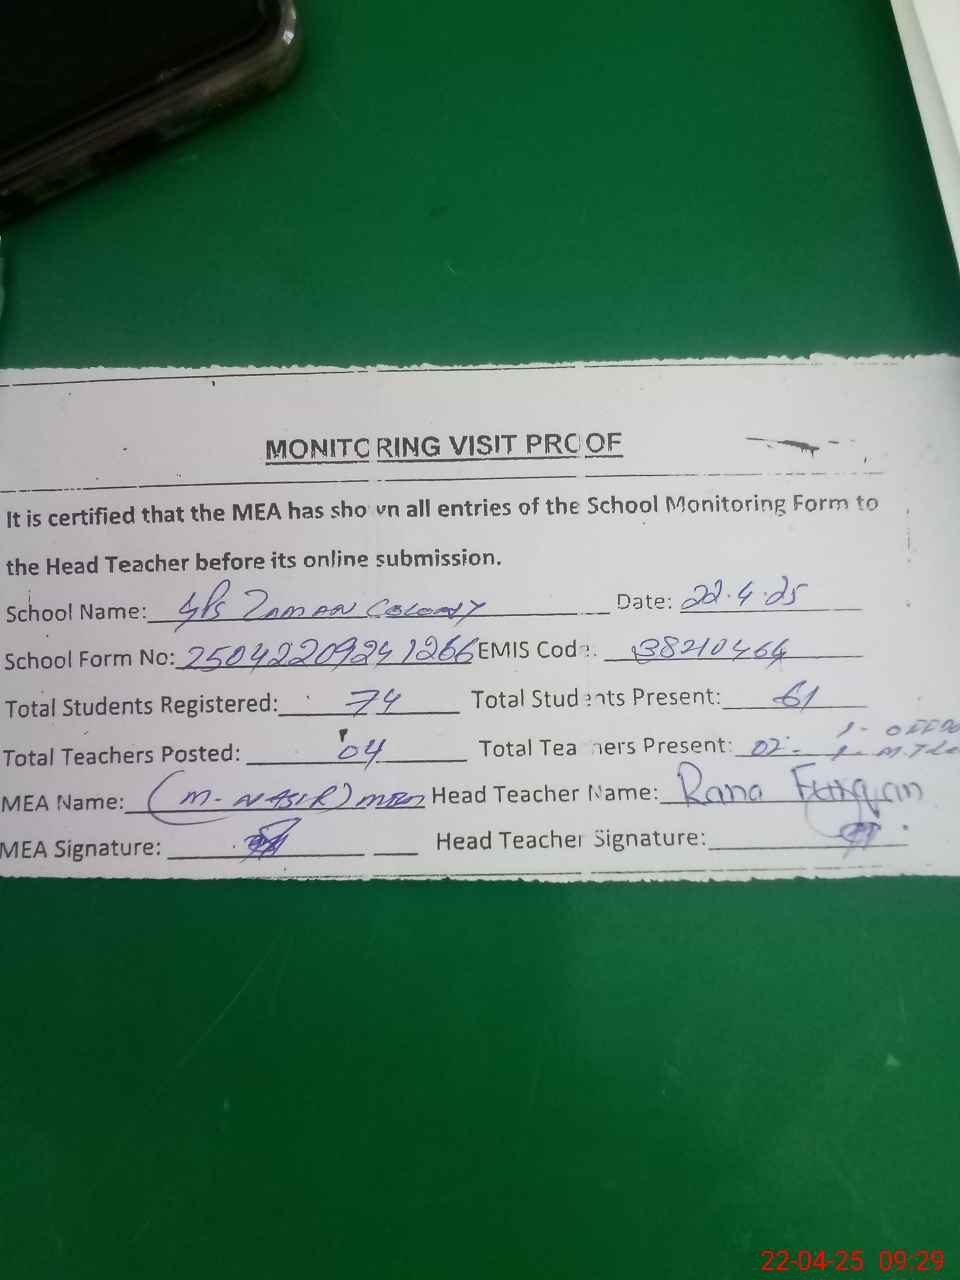 MONITORING VISIT PROOF
It is certified that the MEA has shown all entries of the School Monitoring Form to
the Head Teacher before its online submission.
School Name: GPS ZAMAN COLONY Date: 22.4.25
School Form No: 25042209241266 EMIS Code: 38210464
Total Students Registered: 74 Total Students Present: 61
Total Teachers Posted: 04 Total Teachers Present: 02
MEA Name: (M-NASIR) Head Teacher Name: Rana Furqan
MEA Signature: Head Teacher Signature:
22-04-25 09:29